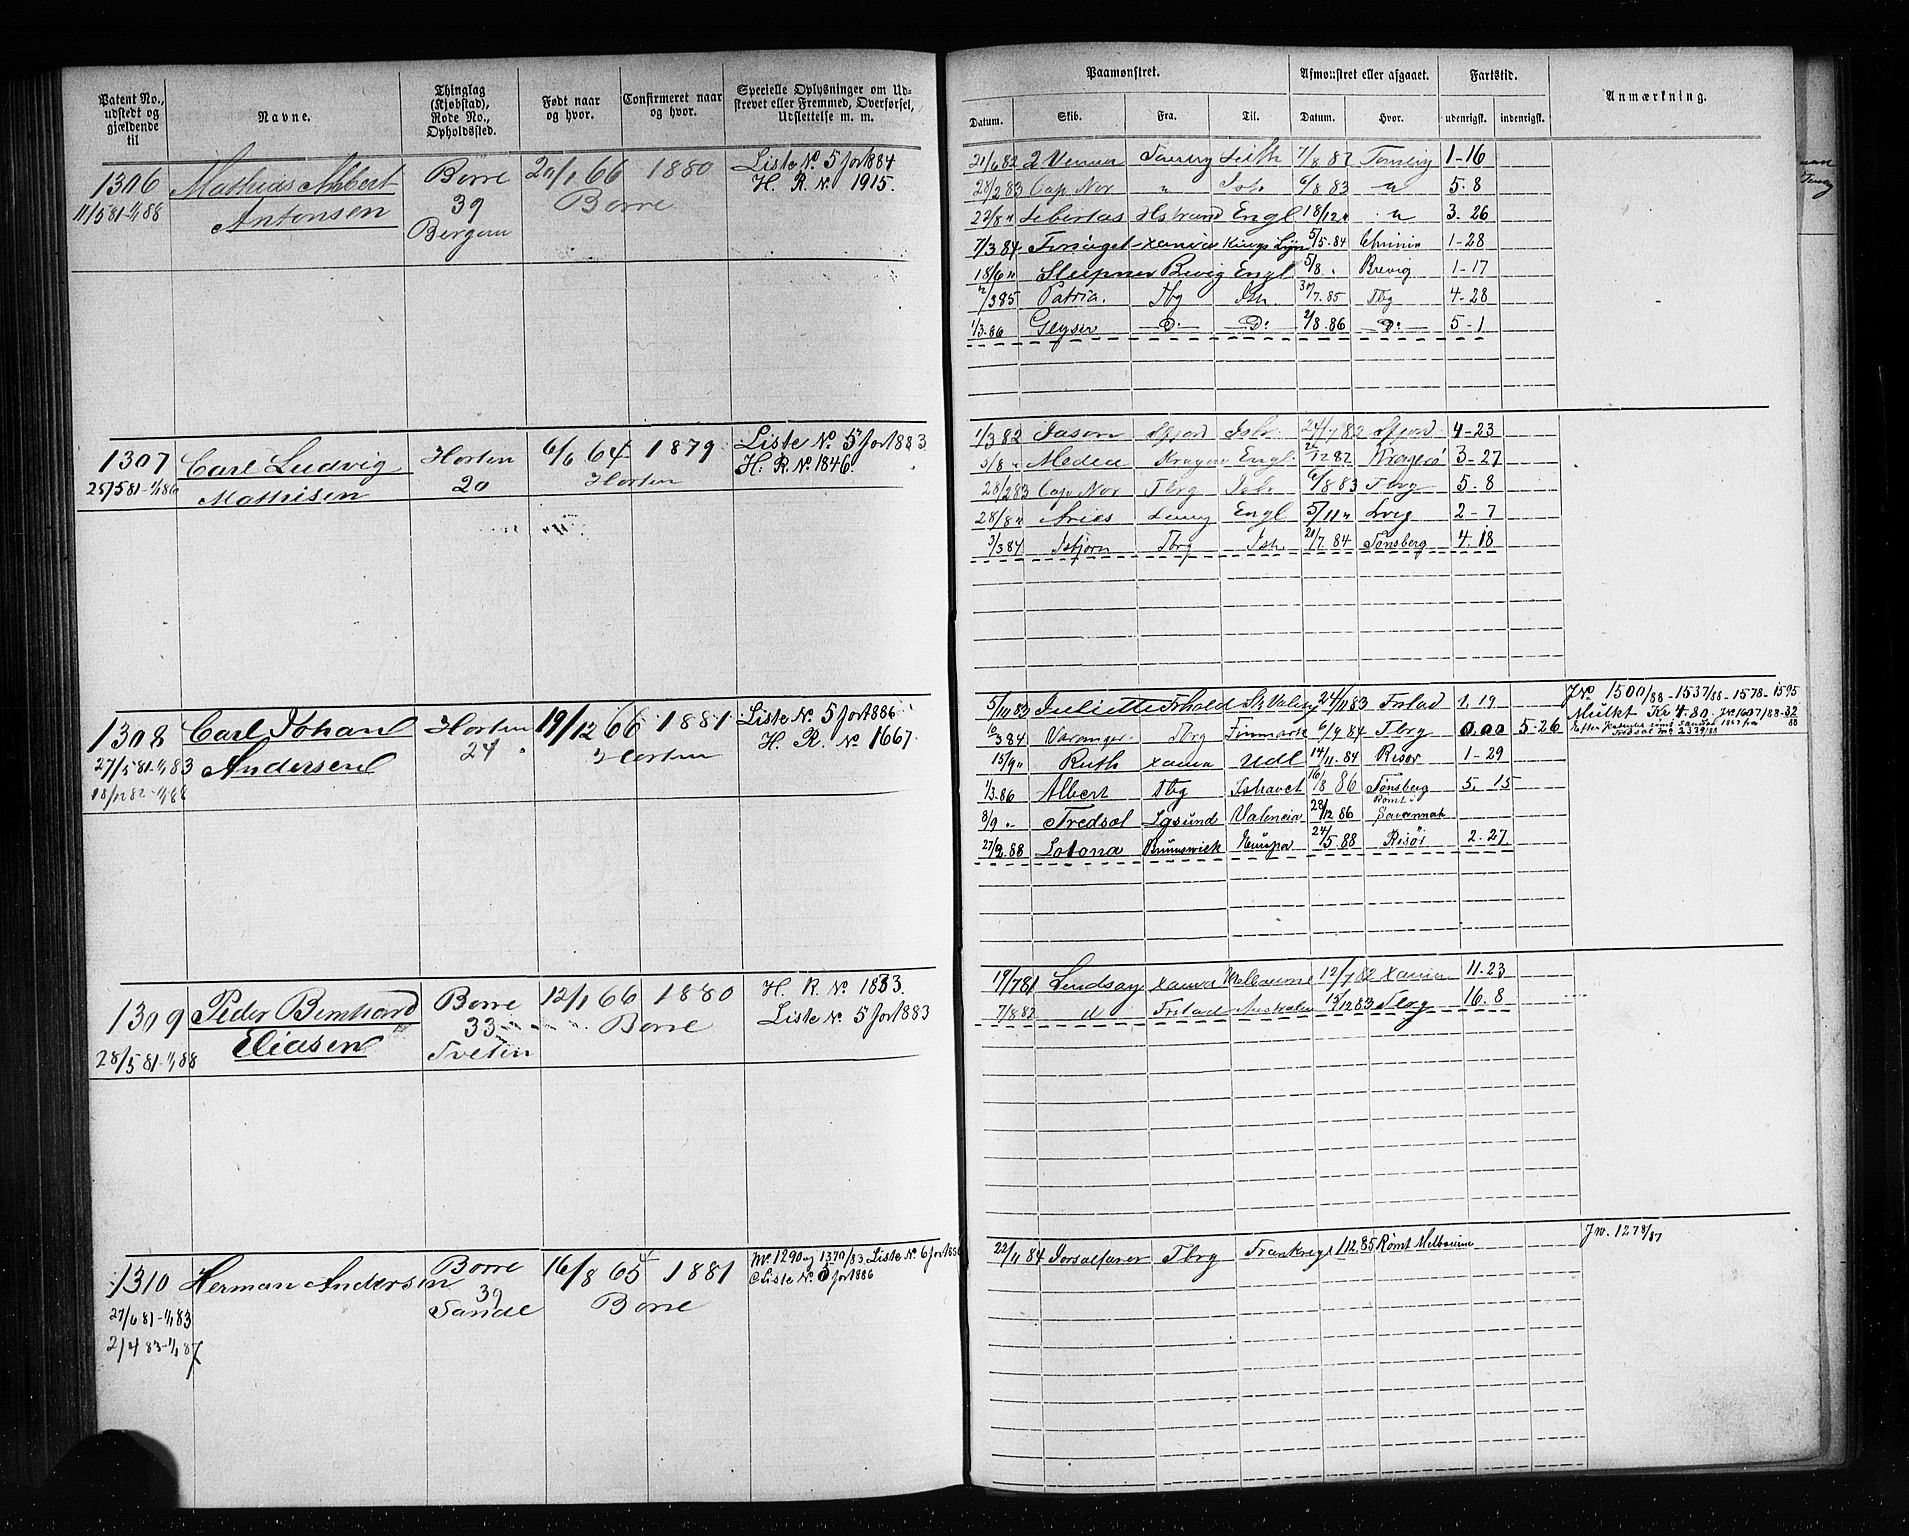 Patent No., udstedt og gjældende til
Navne.
Thinglag (Kjøbstad), Rode No., Opholdssted.
Født naar og hvor.
Confirmeret naar og hvor.
Specielle Oplysninger om Udskrevet eller Fremmed, Overførsel, Udslettelse m. m.
Paamønstret.
Afmønstret eller afgaaet.
Fartstid.
Anmærkning.
Datum. Skib. Fra. Til. Datum. Hvor. udenrigsk. indenrigsk.
1306 Mathias Albert Borre 20/1 66 1880 Liste No 5 for 1884
11/5 81-1/1 88 Antonsen 39 Borre H. R. No 1915.
Bergan
21/6 82 2 Venner Leith 7/8 82 1-16
28/2 83 Cap Nor " Ish. 6/8 83 " 5. 8
Libertas Engl 18/12 " " 3. 26
7/3 84 Kings Lyn 5/5. 84 1-28
18/6 " Sleipner Brevig Engl 5/8 " Brevig 1-17
/3 85 Patria. Tbg Ish. 7. 85 Tbg 4-28
1/3. 86 Geyser D: D: 2/8. 86 D: 5-1
1307 Carl Ludvig Horten 6/6 64 1879 Liste No 5 for 1883
25/5 81-1/1 86 Mathisen 20 Horten H. R. No 1846
1/3 82 Jason Ish. 24/7 82 4-23
5/8 " Medea Kragerø Engl 12 82 Kragerø 3-27
28/2 83 Cap Nor Tbrg Ish. 6/8 83 Tbrg 5. 8
28/8 " Aries Engl 5/11 " Lvig 2-7
3/3 84 Isbjørn Tbrg Ish. 7. 84 Tønsberg 4. 18
1308 Carl Johan Horten 19/12 66 1881 Liste No 5 for 1886
27/5 81-1/1 83 Andersen 24 Horten H. R. No 1667
18/12 82-1/1 88
5/10 83 Juliette Frhald St. Valery 24/11 83 Frstad 1. 19
3 84 Varanger Tbrg Finmark 6/9 84 Tbrg 0.00 5-26
15/9 " Ruth Udl 14/11. 84 Risør 1-29
1/3. 86 Albert Tbg Ishavet 16/8 86 Tønsberg 5. 15
8/9 " Fredsæl Lgsund Valencia 28/12 86 Rømt Savannah
27/2. 88 Lotona Brunswick Europa 24/5. 88 Risør 2. 27
J No 1500/88 - 1537/88 - 1578 - 1595
Mulkt Kr 4.80. J No 1607/88-32
1309 Peder Bernhard Borre 12/1 66 1880 H. R. No 1883.
28/5 81-1/1 88 Eliasen 33 Borre Liste No 5 for 1883
Tveten
19/7 81 Lindsay Melbourne 12/7 82 11-23
7/8 82 " Frstad Australien 12 83 Tbrg 16. 8
1310 Herman Andersen Borre 16/8 65 1881 No 1290 og 1370/83. Liste No 6 for 1886
27/6 81-1/1 83 39 Borre Liste No 5 for 1886
21/4 83-1/1 87 Sande
22/11 84 Tbrg Frankrig 1/12. 85 Rømt Melbourne
J No. 1278/87